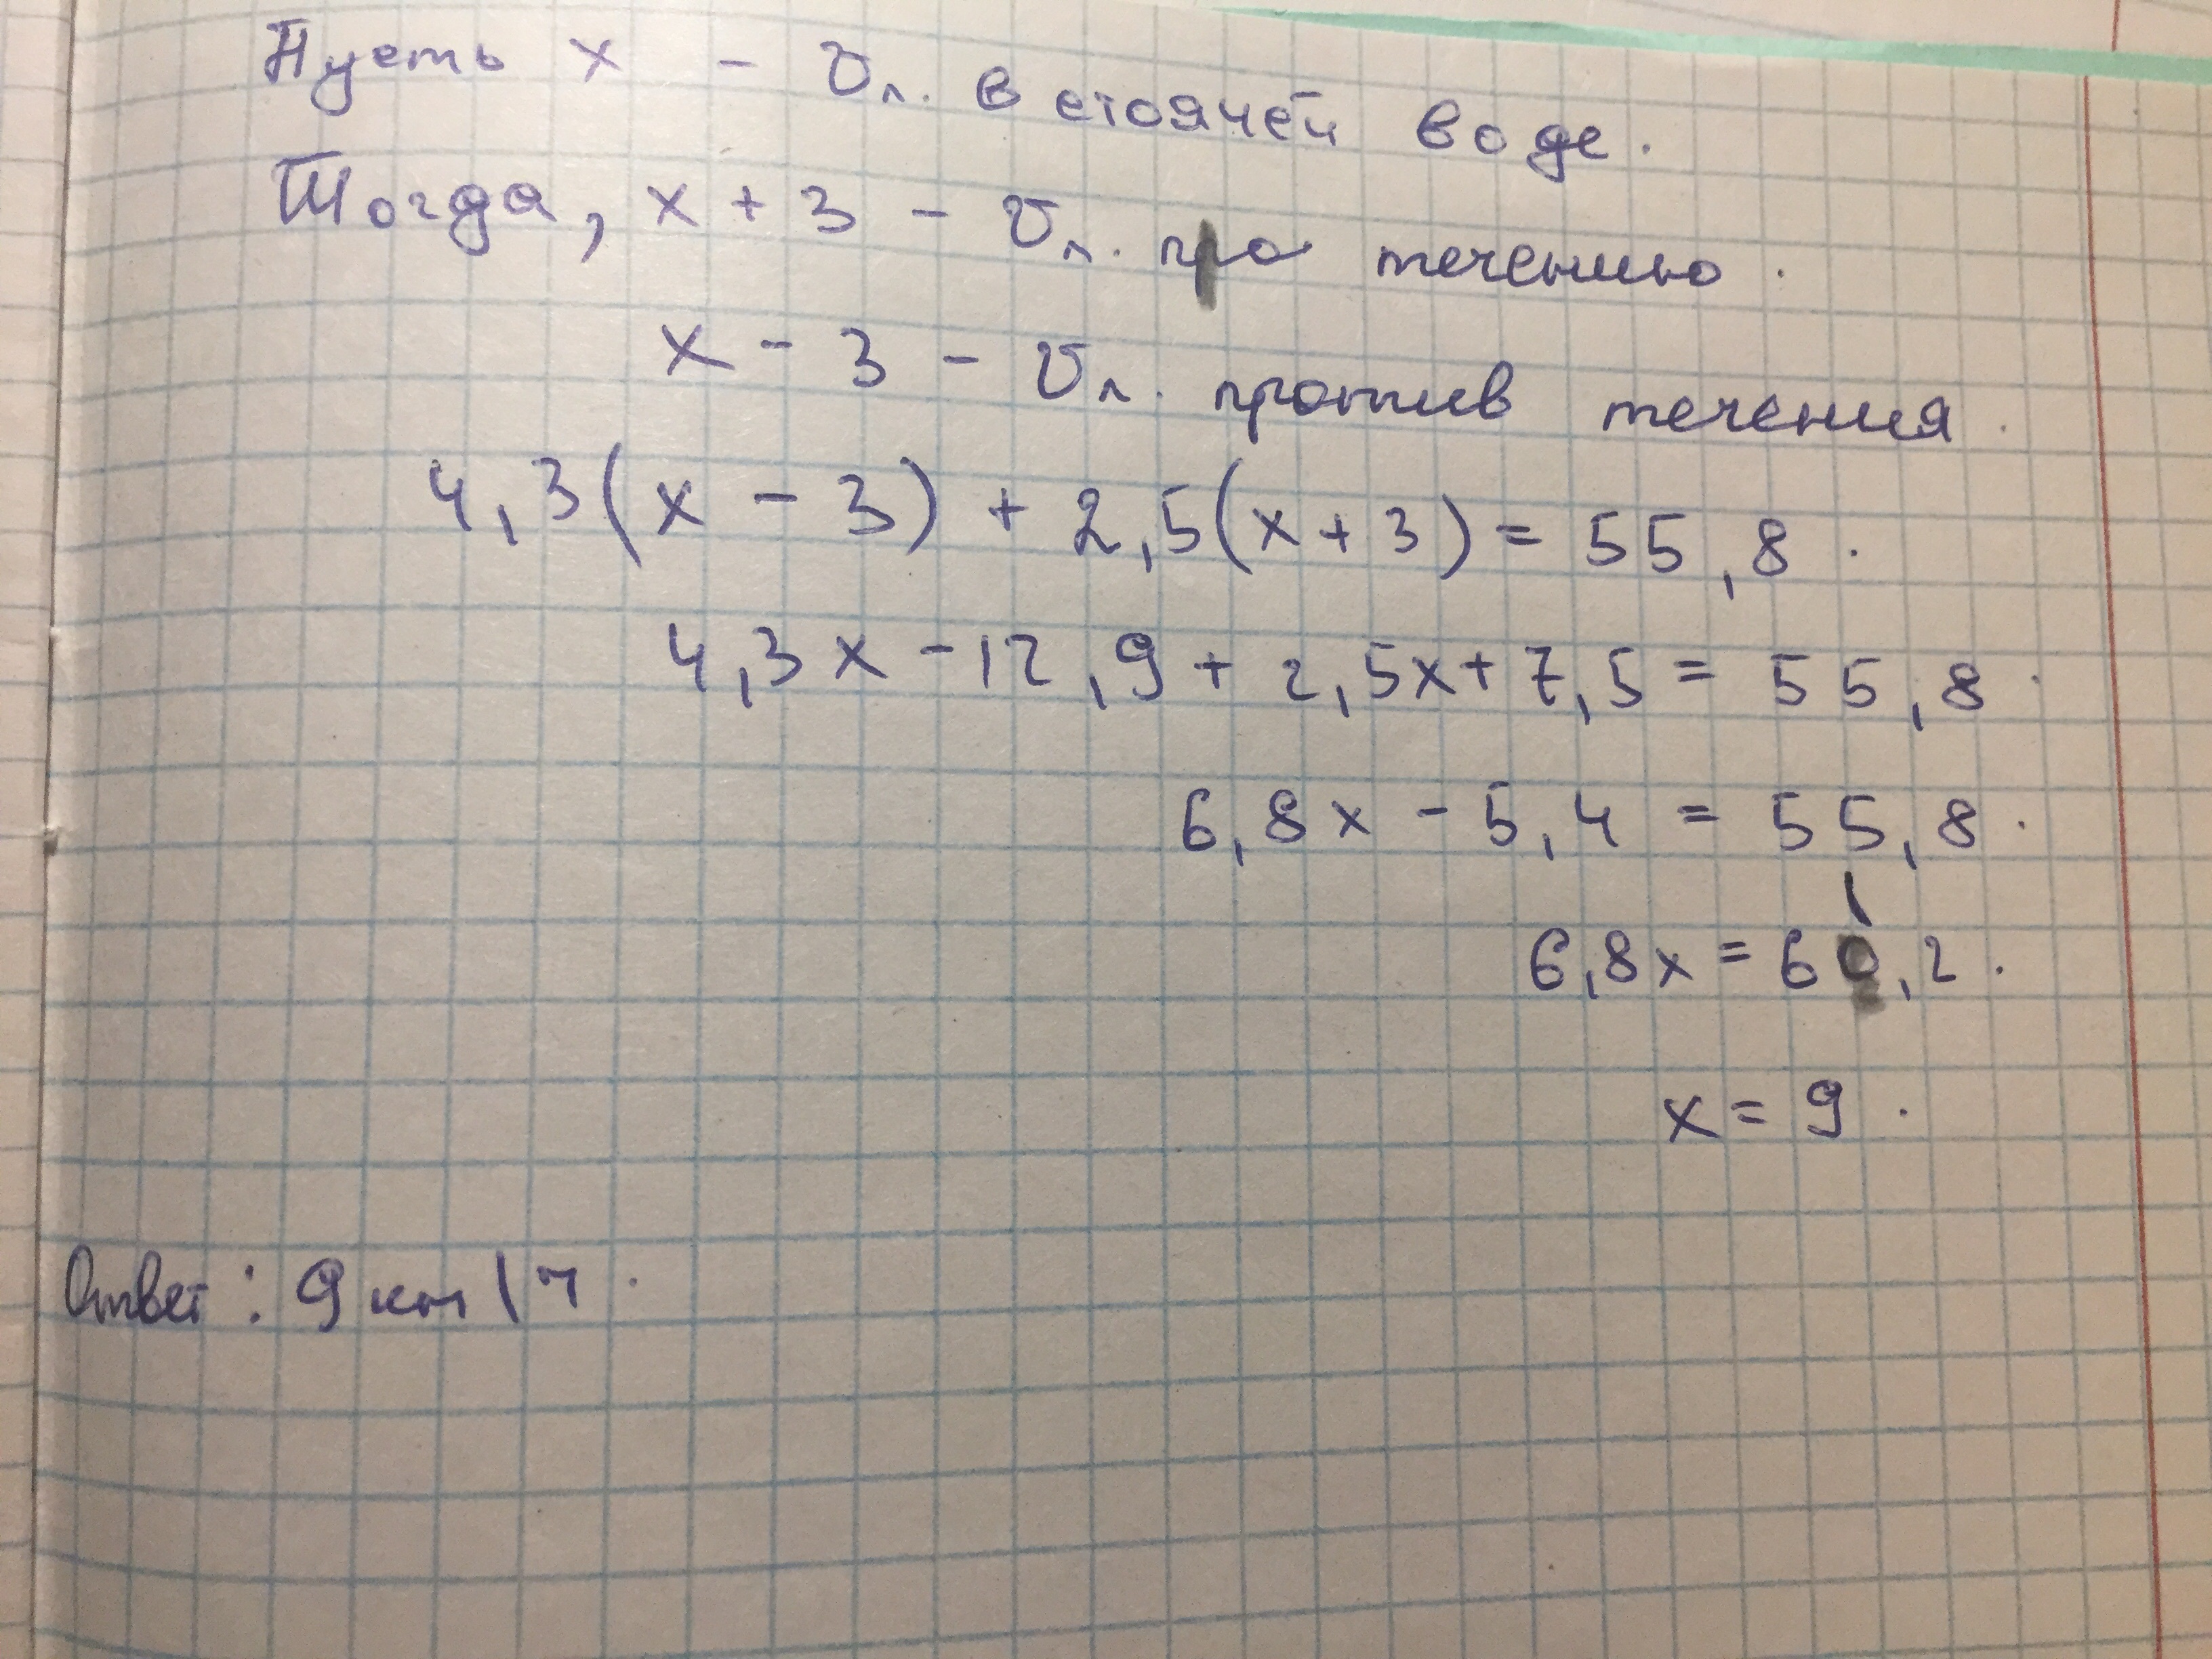 Пусть x - υл. в стоячей воде.
Тогда, x + 3 - υл. по течению.
x - 3 - υл. против течения.
4,3(x - 3) + 2,5(x + 3) = 55,8.
4,3x - 12,9 + 2,5x + 7,5 = 55,8.
6,8x - 5,4 = 55,8.
6,8x = 61,2.
x = 9.
Ответ: 9 км/ч.